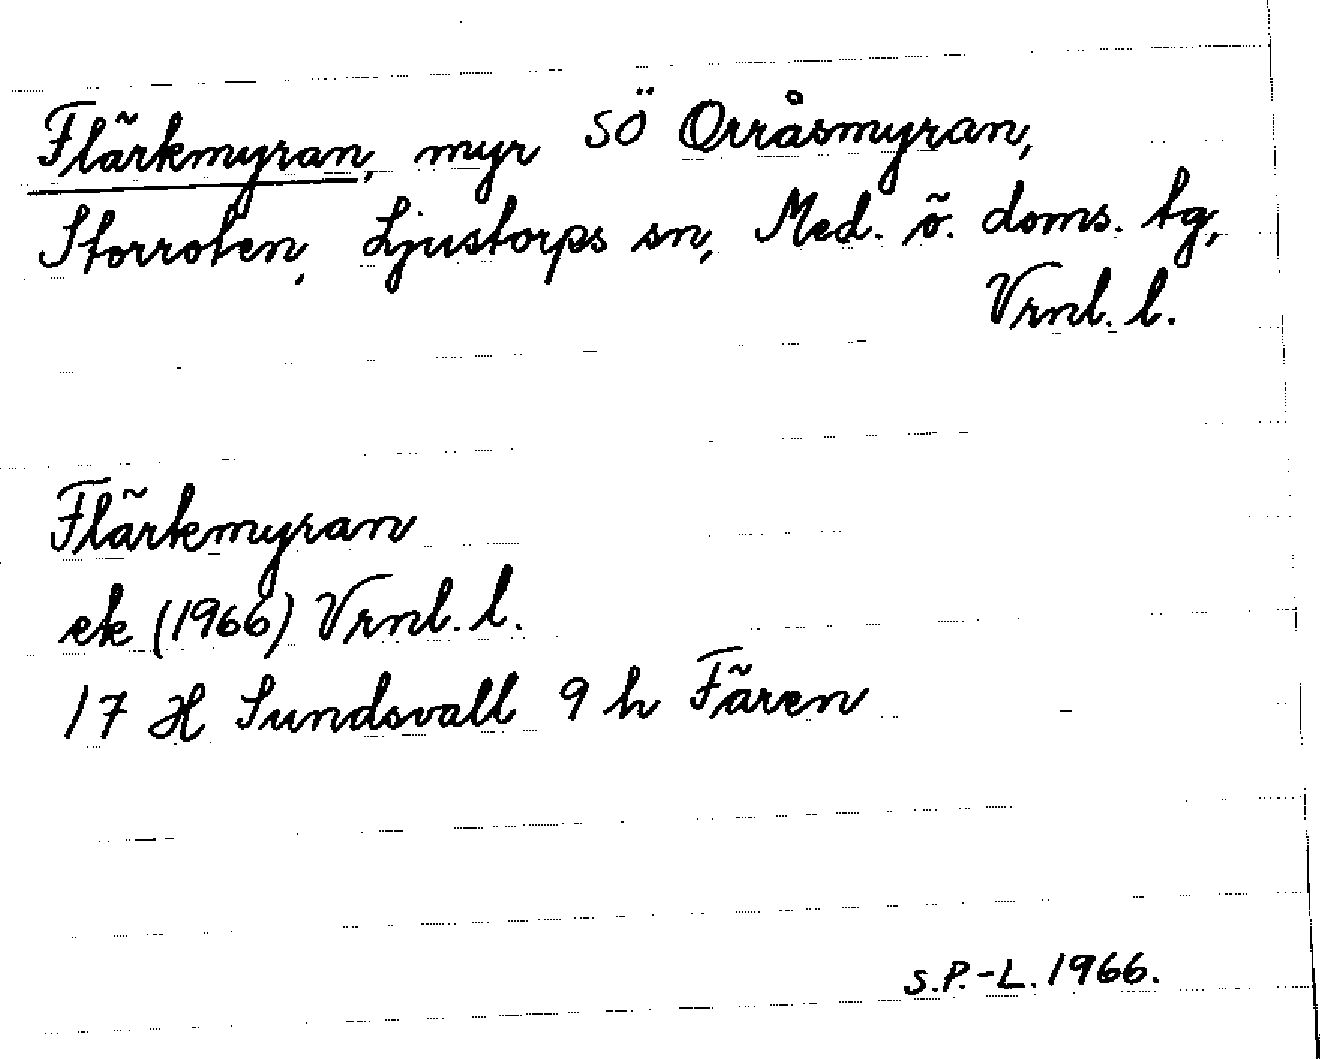 Flärkmyran, myr SÖ Orråsmyran,
Storroten, Ljustorps sn, Med. ö. doms. tg,
Vrnl. l.
Flärkmyran
ek (1966) Vrnl. l.
17 H Sundsvall 9 h Fären
S.P.-L. 1966.